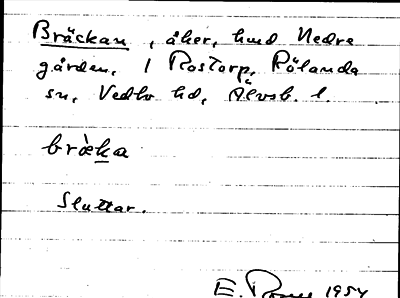 Bräckan, åker, hmd Nedre
gården, 1 Rostorp, Rölanda
sn, Vedbo hd, Älvsb. l.
bràka
Sluttar.
E. 1954